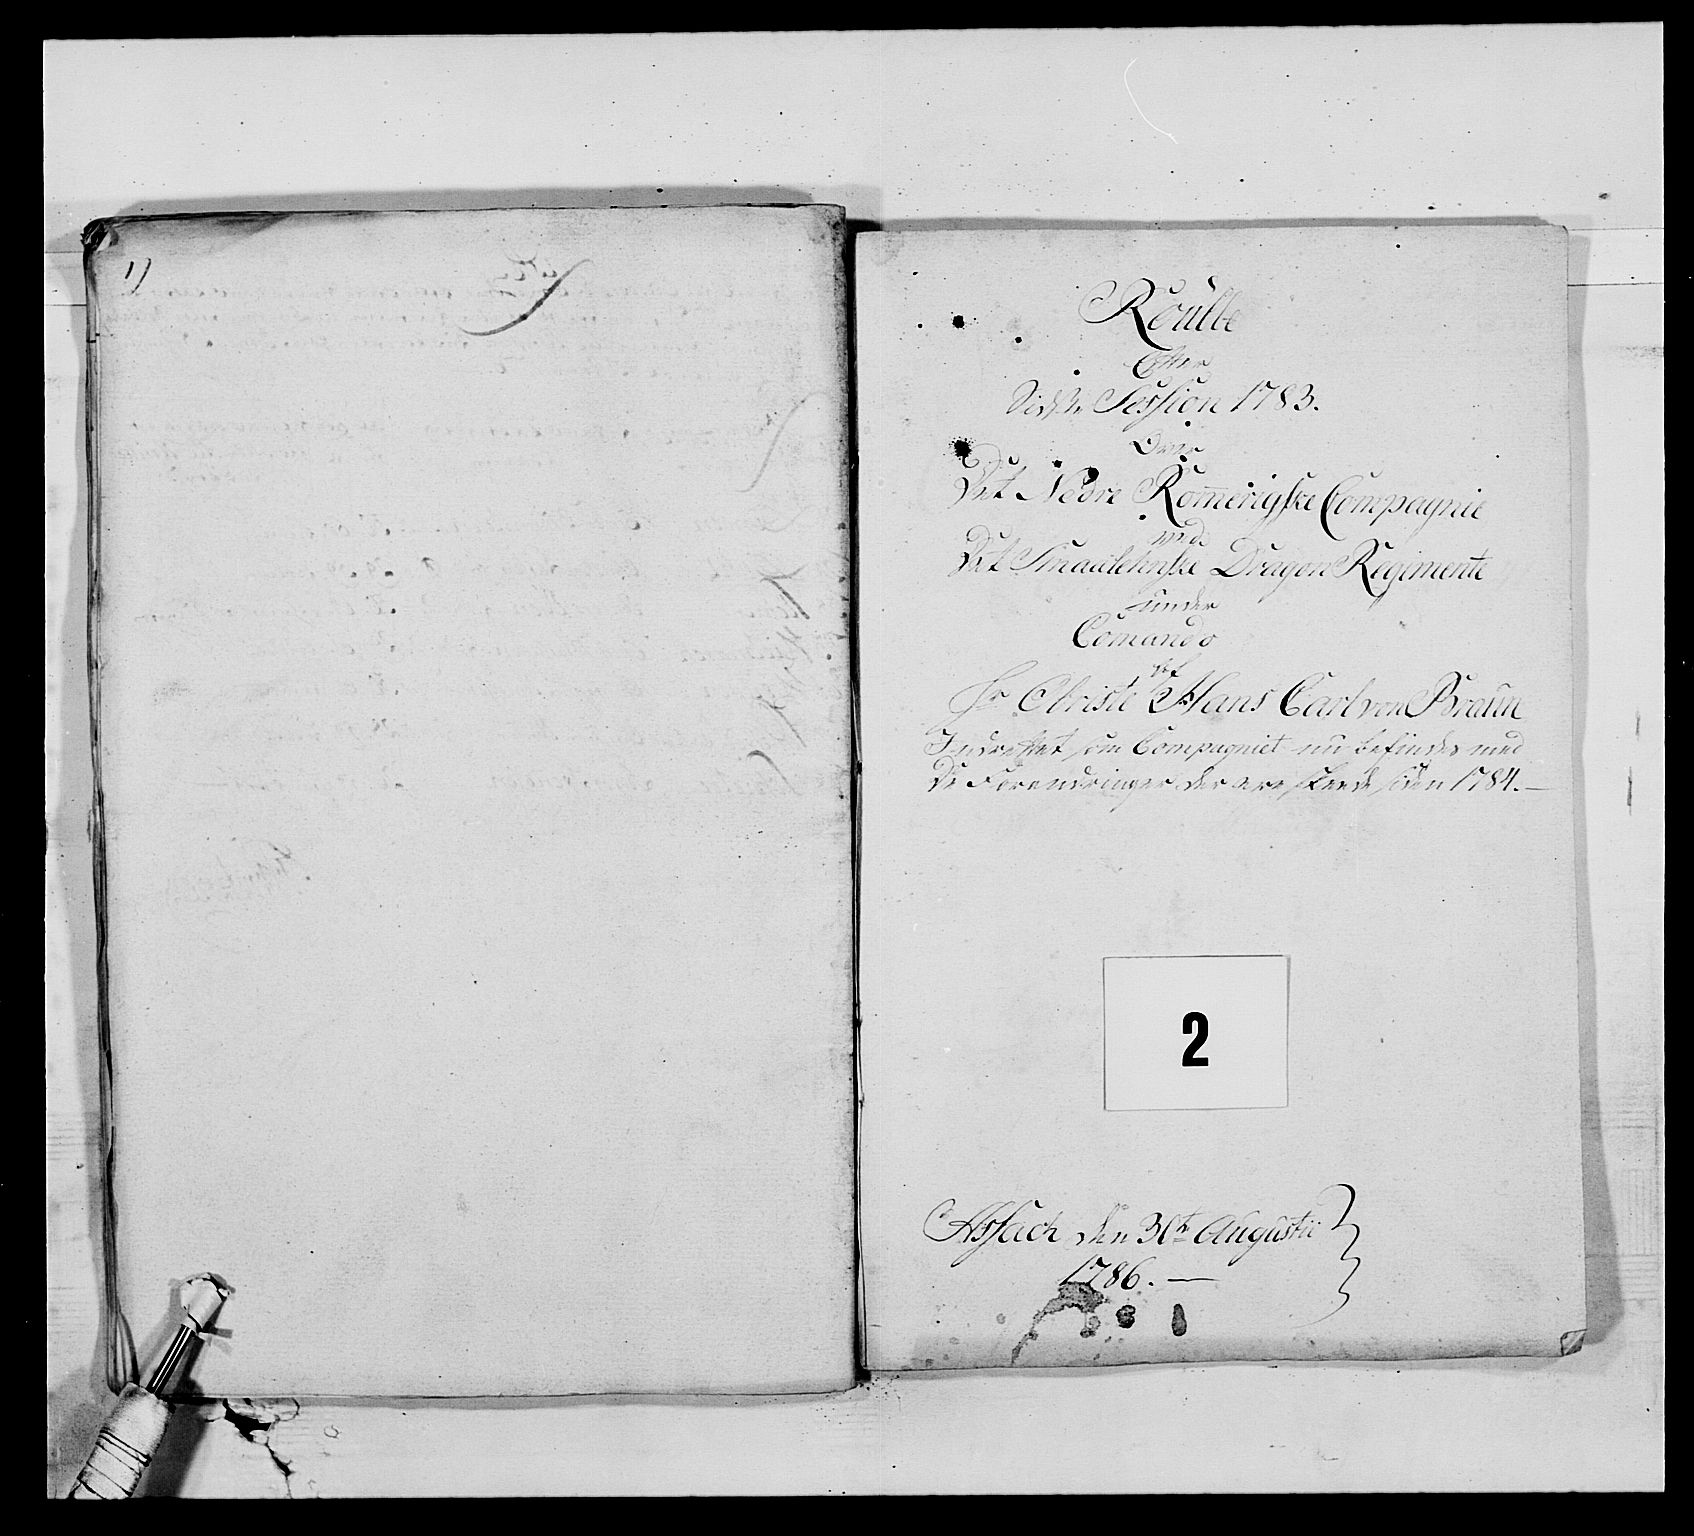 1)
Roulle
Efter
Sidste Session 1783.
Over
Det Nedre Rom̄erigske Compagnie
ved
Det Smaalehnske Dragon Regimente
under
Comando
af
Hr Obriste Hans Carl von Braun
Indrettet som Compagniet nu befindes med
De Forandringer der ere skeede siden 1784.—
2
Assach den 30te Augustii
1786. —